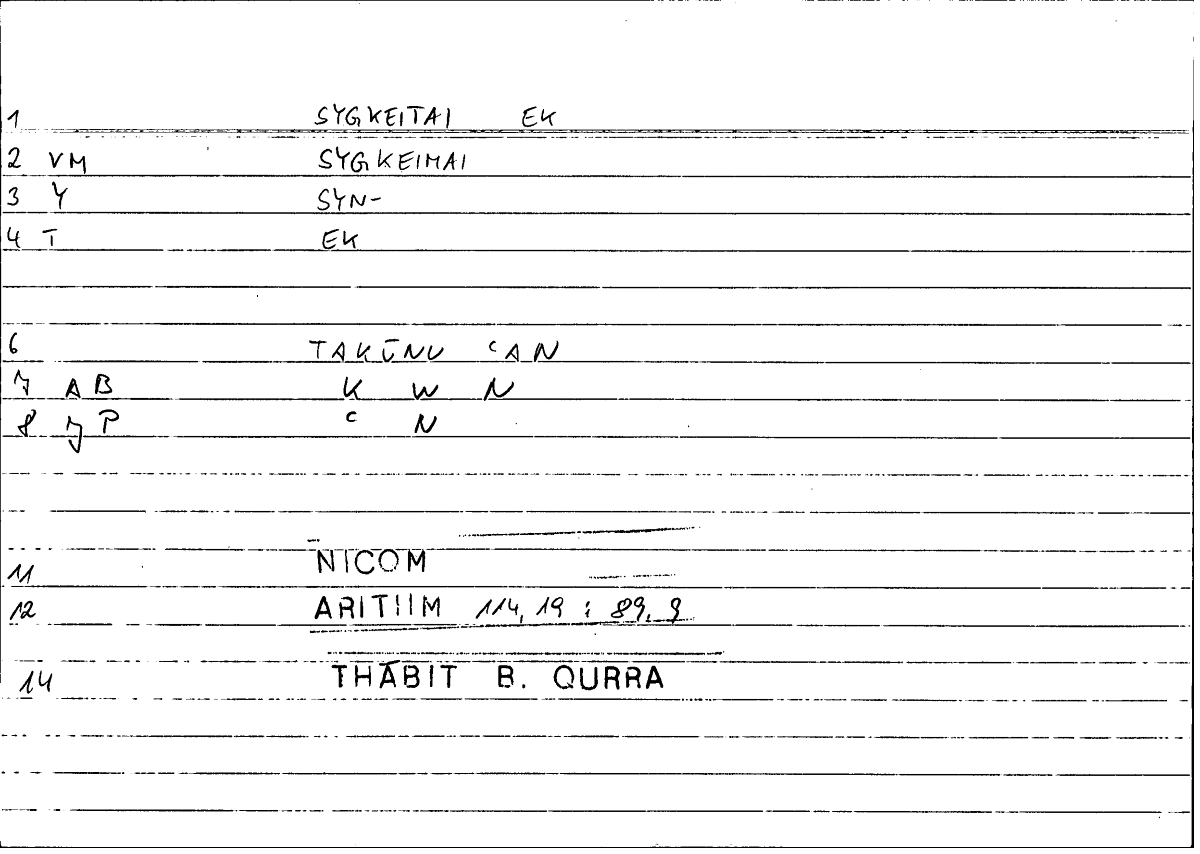 1 SYGKEITAI EK
2 VM SYGKEIMAI
3 Y SYN-
4 T EK
6 TAKŪNU ʿAN
7 AB K W N
8 P ʿ N
11 NICOM
12 ARITIIM 114,19 : 89,9
14 THĀBIT B. QURRA